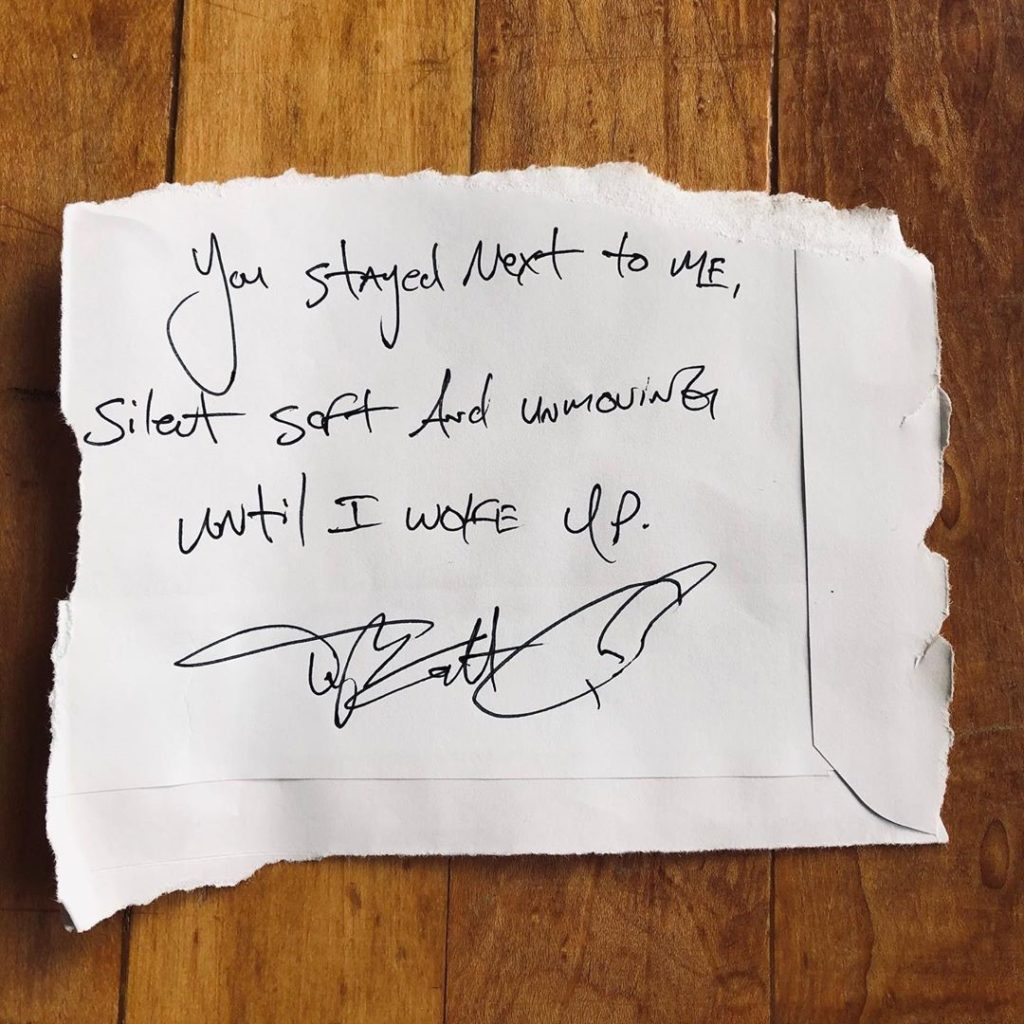 You stayed Next to ME,
silent soft And UNMOVING
UNtil I WOKE UP.